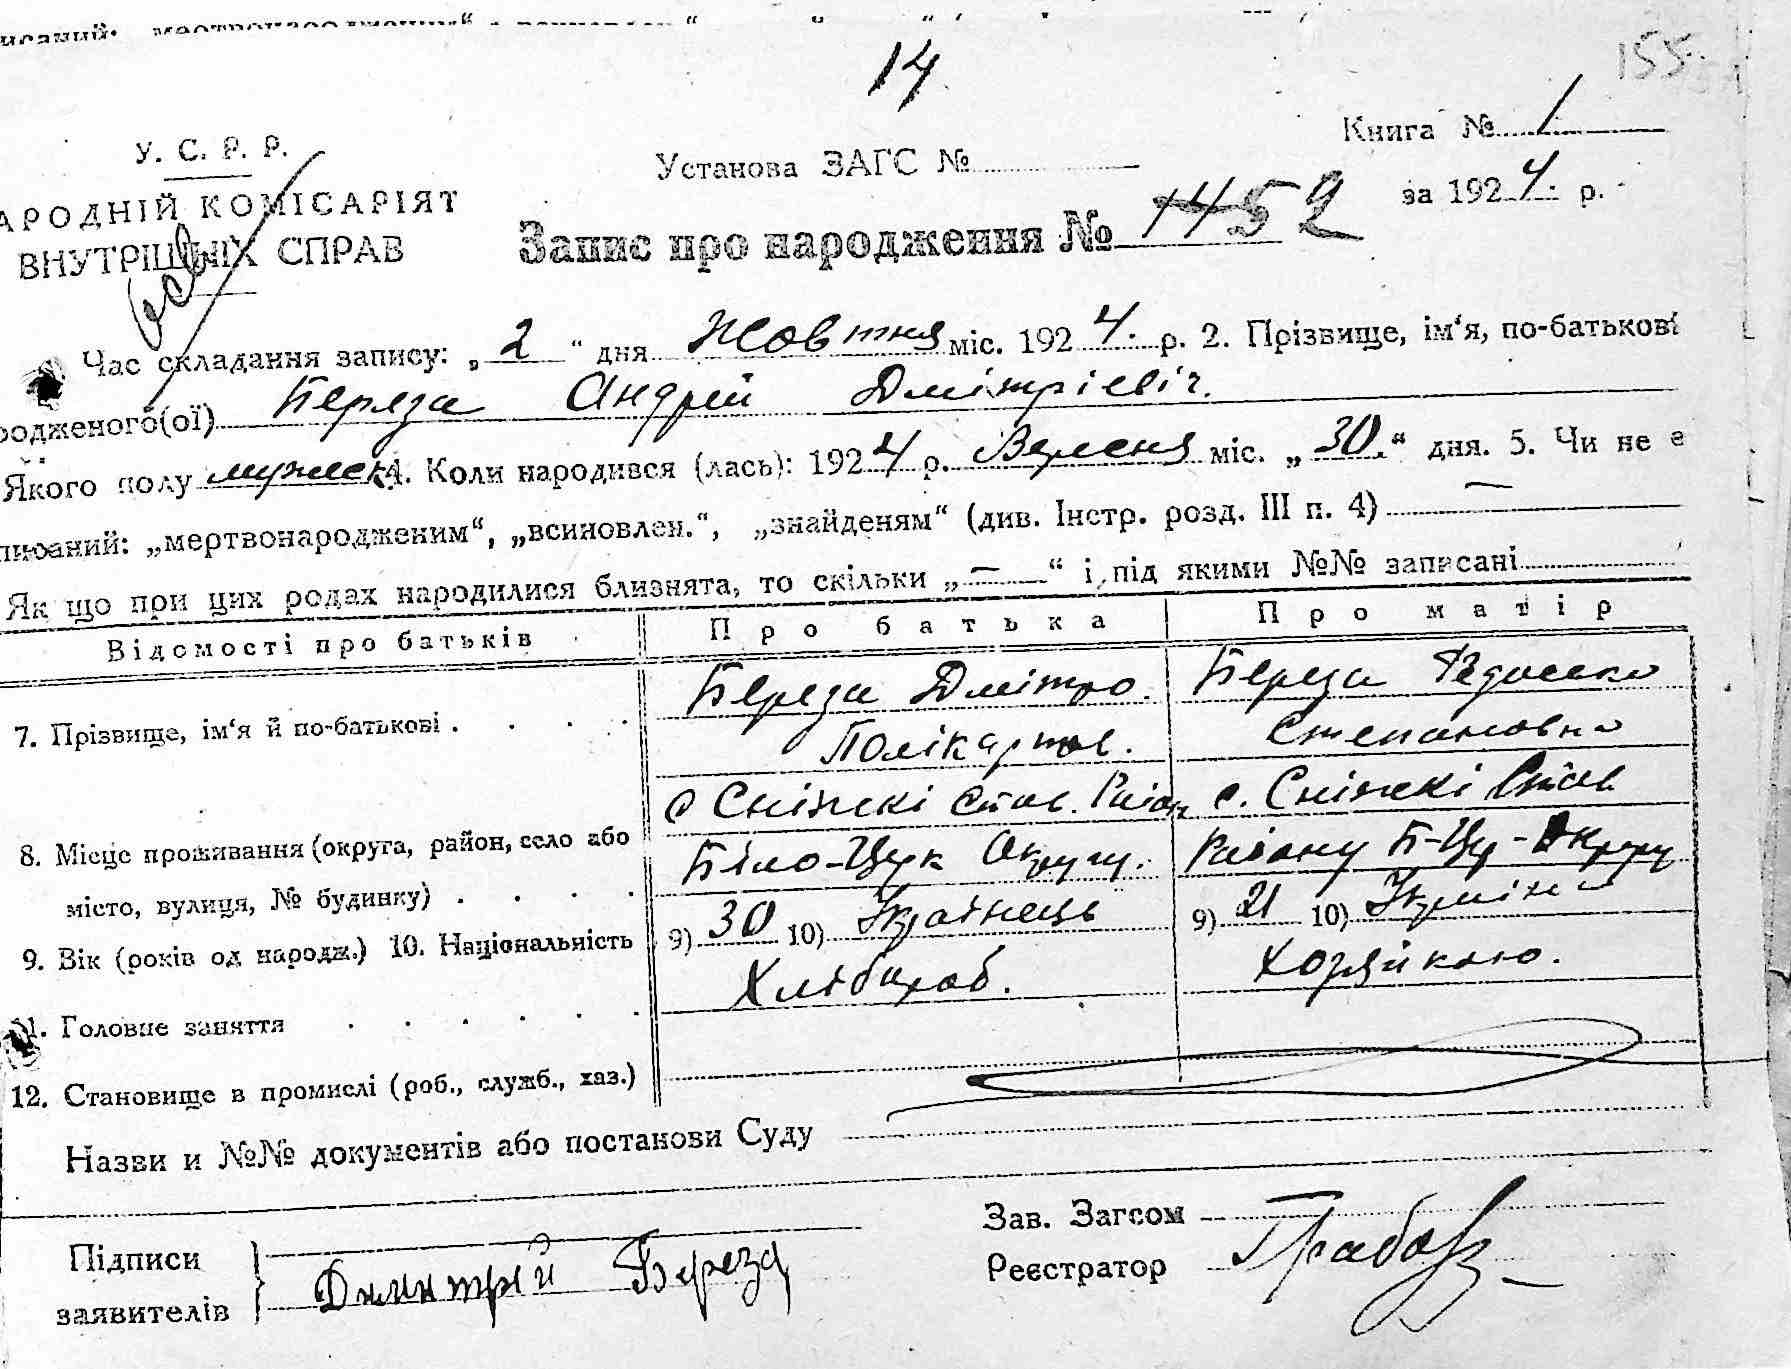 14
155
У. С. Р. Р.
АРОДНІЙ КОМІСАРІЯТ
ВНУТРІШНІХ СПРАВ
Установа ЗАГС №
Книга № 1
за 1924. р.
Запис про народження № 52
Час складання запису: „ 2 “ дня Жовтня міс. 1924. р. 2. Прізвище, ім‘я, по-батькові
одженого(ої) Береза Андрей Дмітрієвіч.
Якого полу мужеск 4. Коли народився (лась): 1924 р. Вересня міс. „ 30. “ дня. 5. Чи не є
писаний: „мертвонародженим“, „всиновлен.“, „знайденям“ (див. Інстр. розд. III п. 4) —
Як що при цих родах народилися близнята, то скільки „ — “ і, під якими №№ записані
Відомості про батьків Про батька Про матір
7. Прізвище, ім‘я й по-батькові . . . .
Береза Дмітро. Береза
Полікарпов. Степановна
8. Місце проживання (округа, район, село або
місто, вулиця, № будинку) . . . .
с Сніжкі Став. Район с. Сніжкі Став
Біло-Церк Округу. Району Б-Цер-Округу
9. Вік (років од народж.) 10. Національність 9) 30 10) Українець 9) 21 10) Україн
11. Головне заняття . . . . . . Хлібороб. Хозяйкою.
12. Становище в промислі (роб., служб., хаз.)
Назви и №№ документів або постанови Суду
Підписи
заявителів } Димитрій Береза
Зав. Загсом
Реєстратор